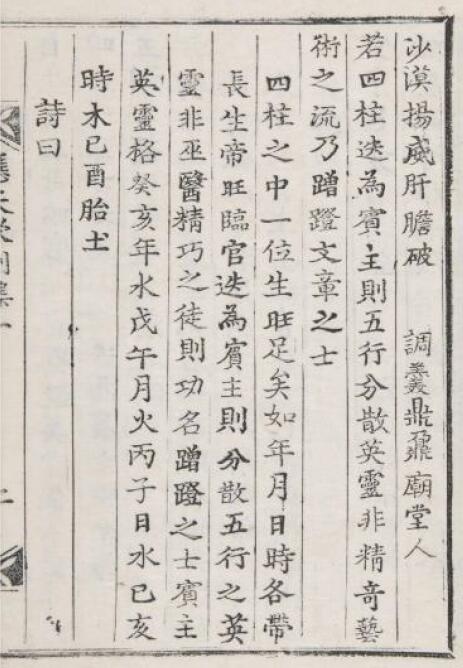 沙漠揚威肝膽破　調羹鼎鼐廟堂人
若四柱迭為賓主則五行分散英靈非精奇藝
術之流乃蹭蹬文章之士
四柱之中一位生旺足矣如年月日時各帶
長生帝旺臨官迭為賓主則分散五行之英
靈非巫醫精巧之徒則功名蹭蹬之士賓主
英靈格癸亥年水戊午月火丙子日水已亥
時木已酉胎土
詩曰